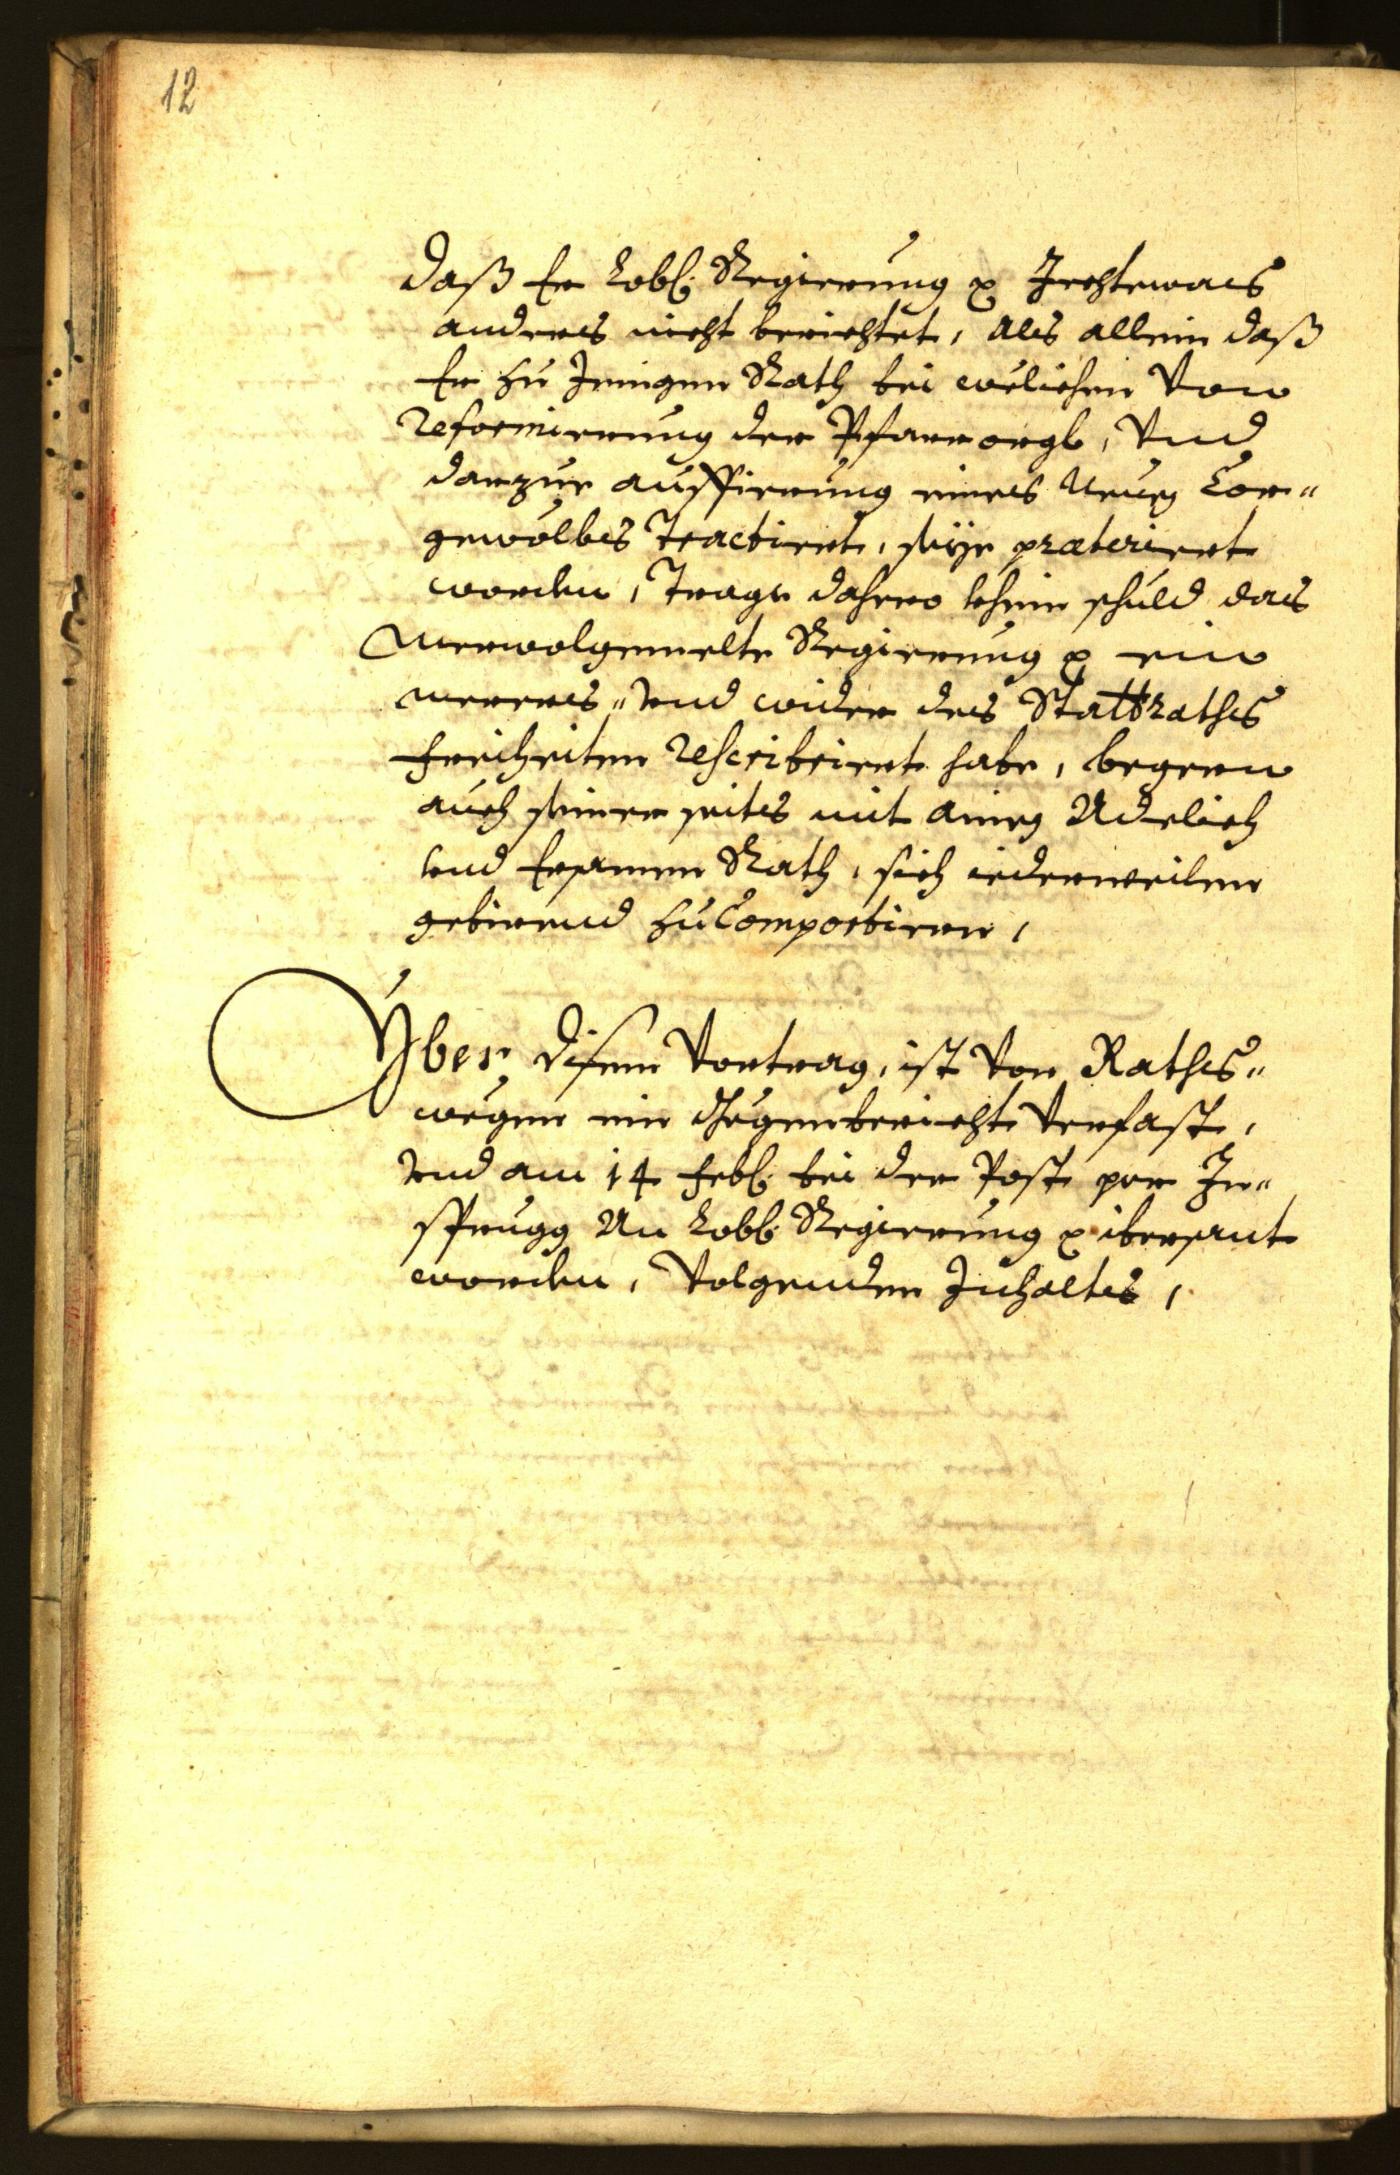 12
daß Er Lobl: Regierung ꝛc Ichtewas
anders nicht berichtet, als allein daß
Er zu Jenigen Rath bei welichen von
reformierung der Pfarr orgl, Vnd
darzue aufffierung eines Neuen Cor„
gewölbes tractiert, seye præteriert
worden, Trage dahero khein schuld das
Merwolgemelte Regierung ꝛc ein
mereres„ vnd wider des Stattraths
freiheiten rescribiert habe, begern
auch seiner seits mit ainem Adelich
vnd Ersamen Rath, sich iederweilen
gebirend zu Comportiern,
Yber disem Vortrag, ist von Raths„
wegen ein Gegenbericht verfast,
vnd am 14 Feb: bei der Post per In„
sprugg An Lobl: Regierung ꝛc ibersant
worden, Volgenden Inhaltes,